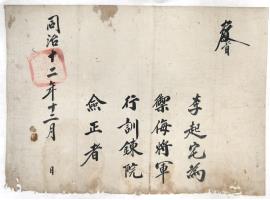 李起宅為
禦侮將軍
行訓鍊院
僉正者
同治十二年十二月　日